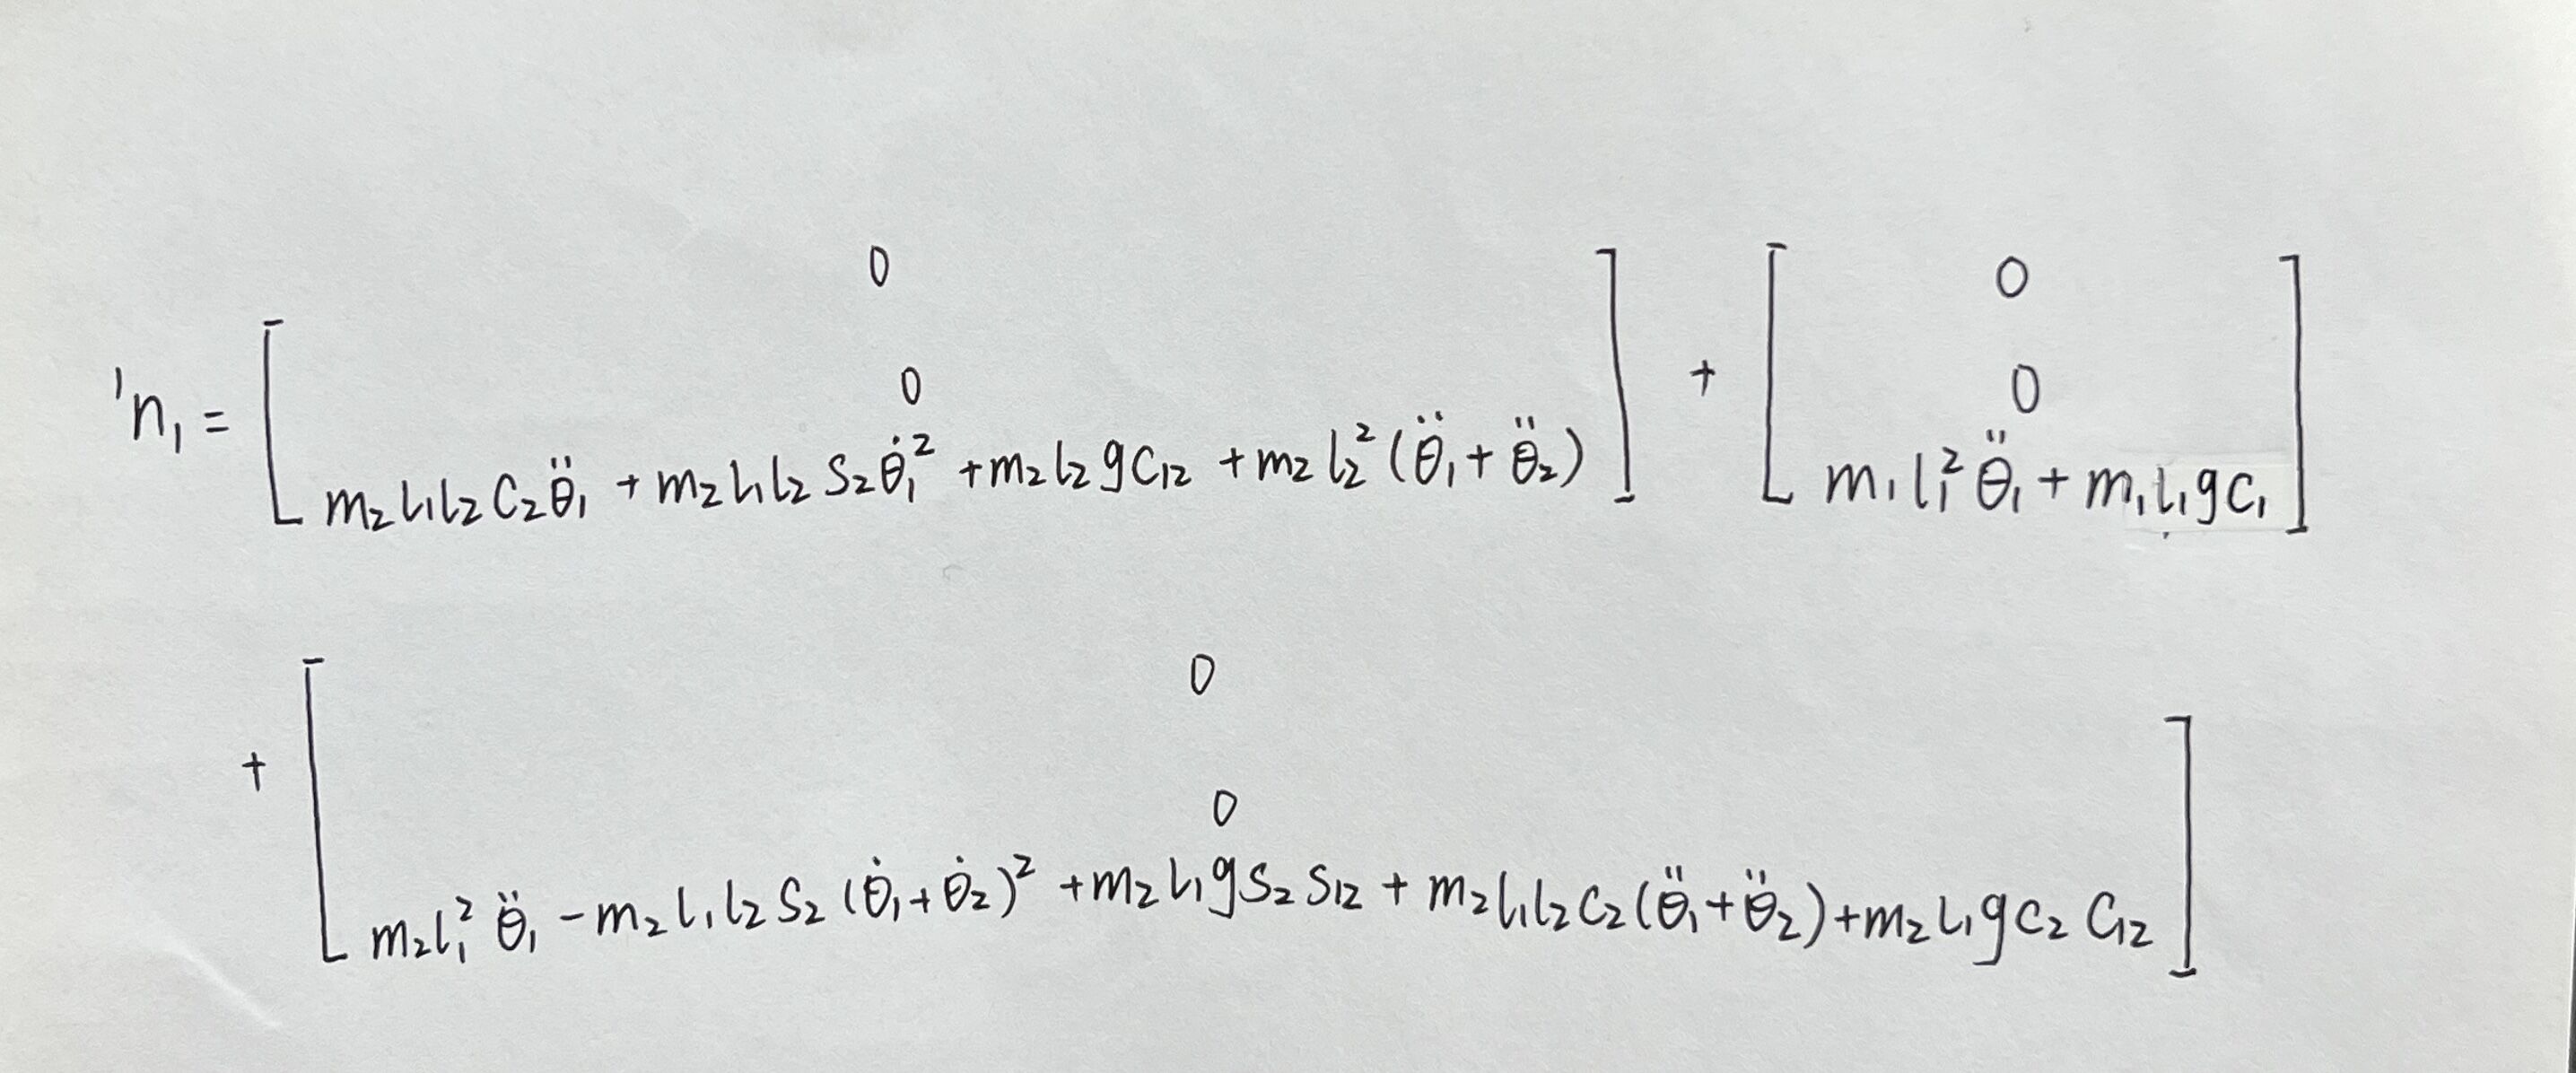 0 0
0 0
¹n₁ = [ m₂l₁l₂c₂θ̈₁ + m₂l₁l₂s₂θ̇₁² + m₂l₂gc₁₂ + m₂l₂²(θ̈₁ + θ̈₂) ] + [ m₁l₁²θ̈₁ + m₁l₁gc₁ ]
0
0
+ [ m₂l₁²θ̈₁ - m₂l₁l₂s₂(θ̇₁ + θ̇₂)² + m₂l₁gs₂s₁₂ + m₂l₁l₂c₂(θ̈₁ + θ̈₂) + m₂l₁gc₂c₁₂ ]